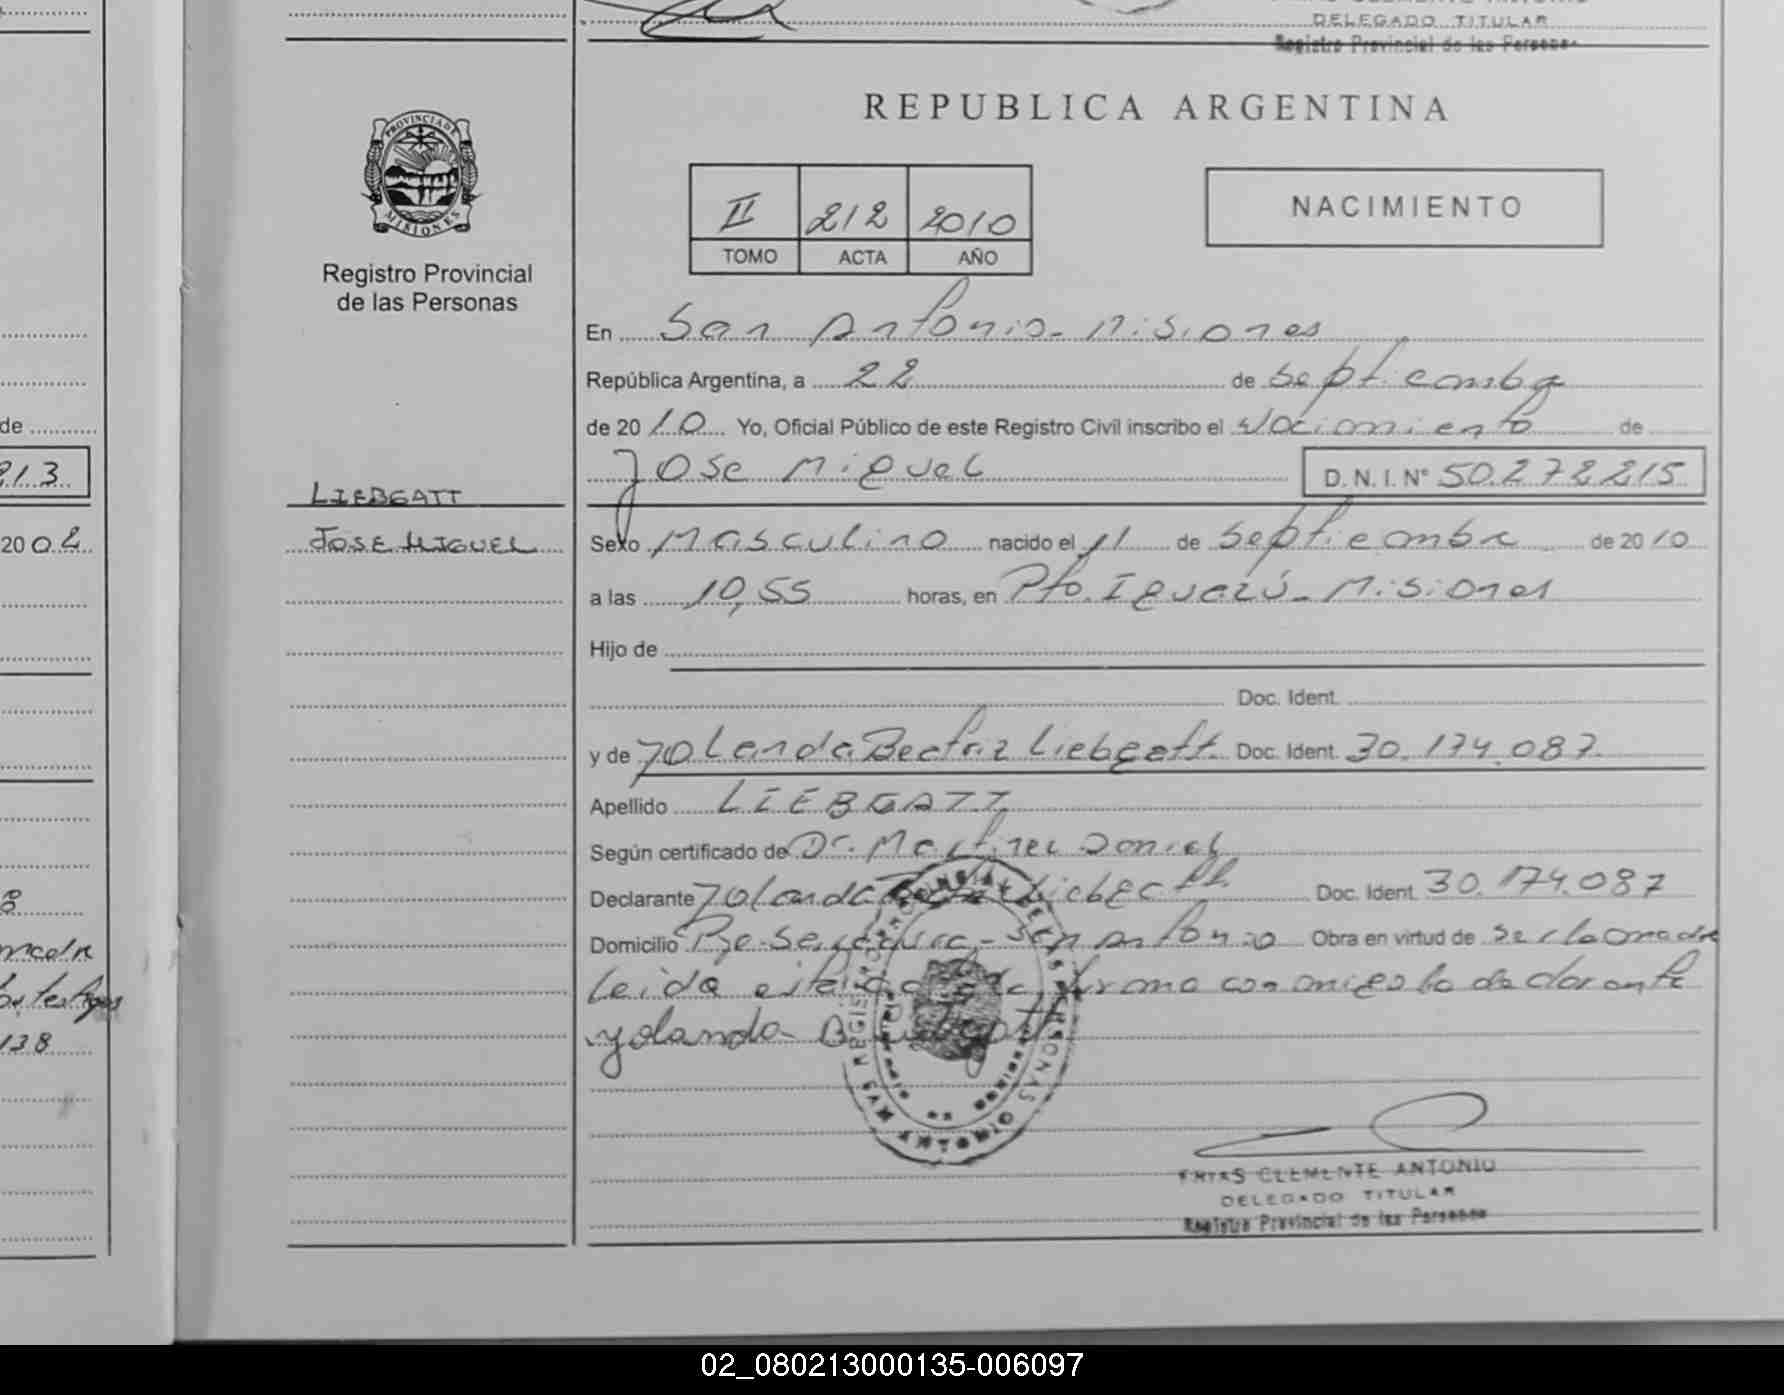 DELEGADO TITULAR
Registro Provincial de las Personas
REPUBLICA ARGENTINA
PROVINCIA DE MISIONES
Registro Provincial
de las Personas
II 212 2010
TOMO ACTA AÑO
NACIMIENTO
En San Antonio - Misiones
República Argentina, a 22 de septiembre
de 2010 Yo, Oficial Público de este Registro Civil inscribo el Nacimiento de
Jose Miguel D.N.I. Nº 50.272.215
LIEBGATT
JOSE MIGUEL
Sexo Masculino nacido el 11 de septiembre de 2010
a las 10,55 horas, en Pto. Iguazú - Misiones
Hijo de
Doc. Ident.
y de Yolanda Beatriz Liebgatt Doc. Ident. 30.174.087
Apellido LIEBGATT
Según certificado de Dr. Martinez Daniel
Declarante Yolanda Liebgatt Doc. Ident. 30.174.087
Domicilio San Antonio Obra en virtud de ser la madre
Leida esta acta firma conmigo la declarante
Yolanda B
FRIAS CLEMENTE ANTONIO
DELEGADO TITULAR
Registro Provincial de las Personas
de
213
2002
138
02_080213000135-006097